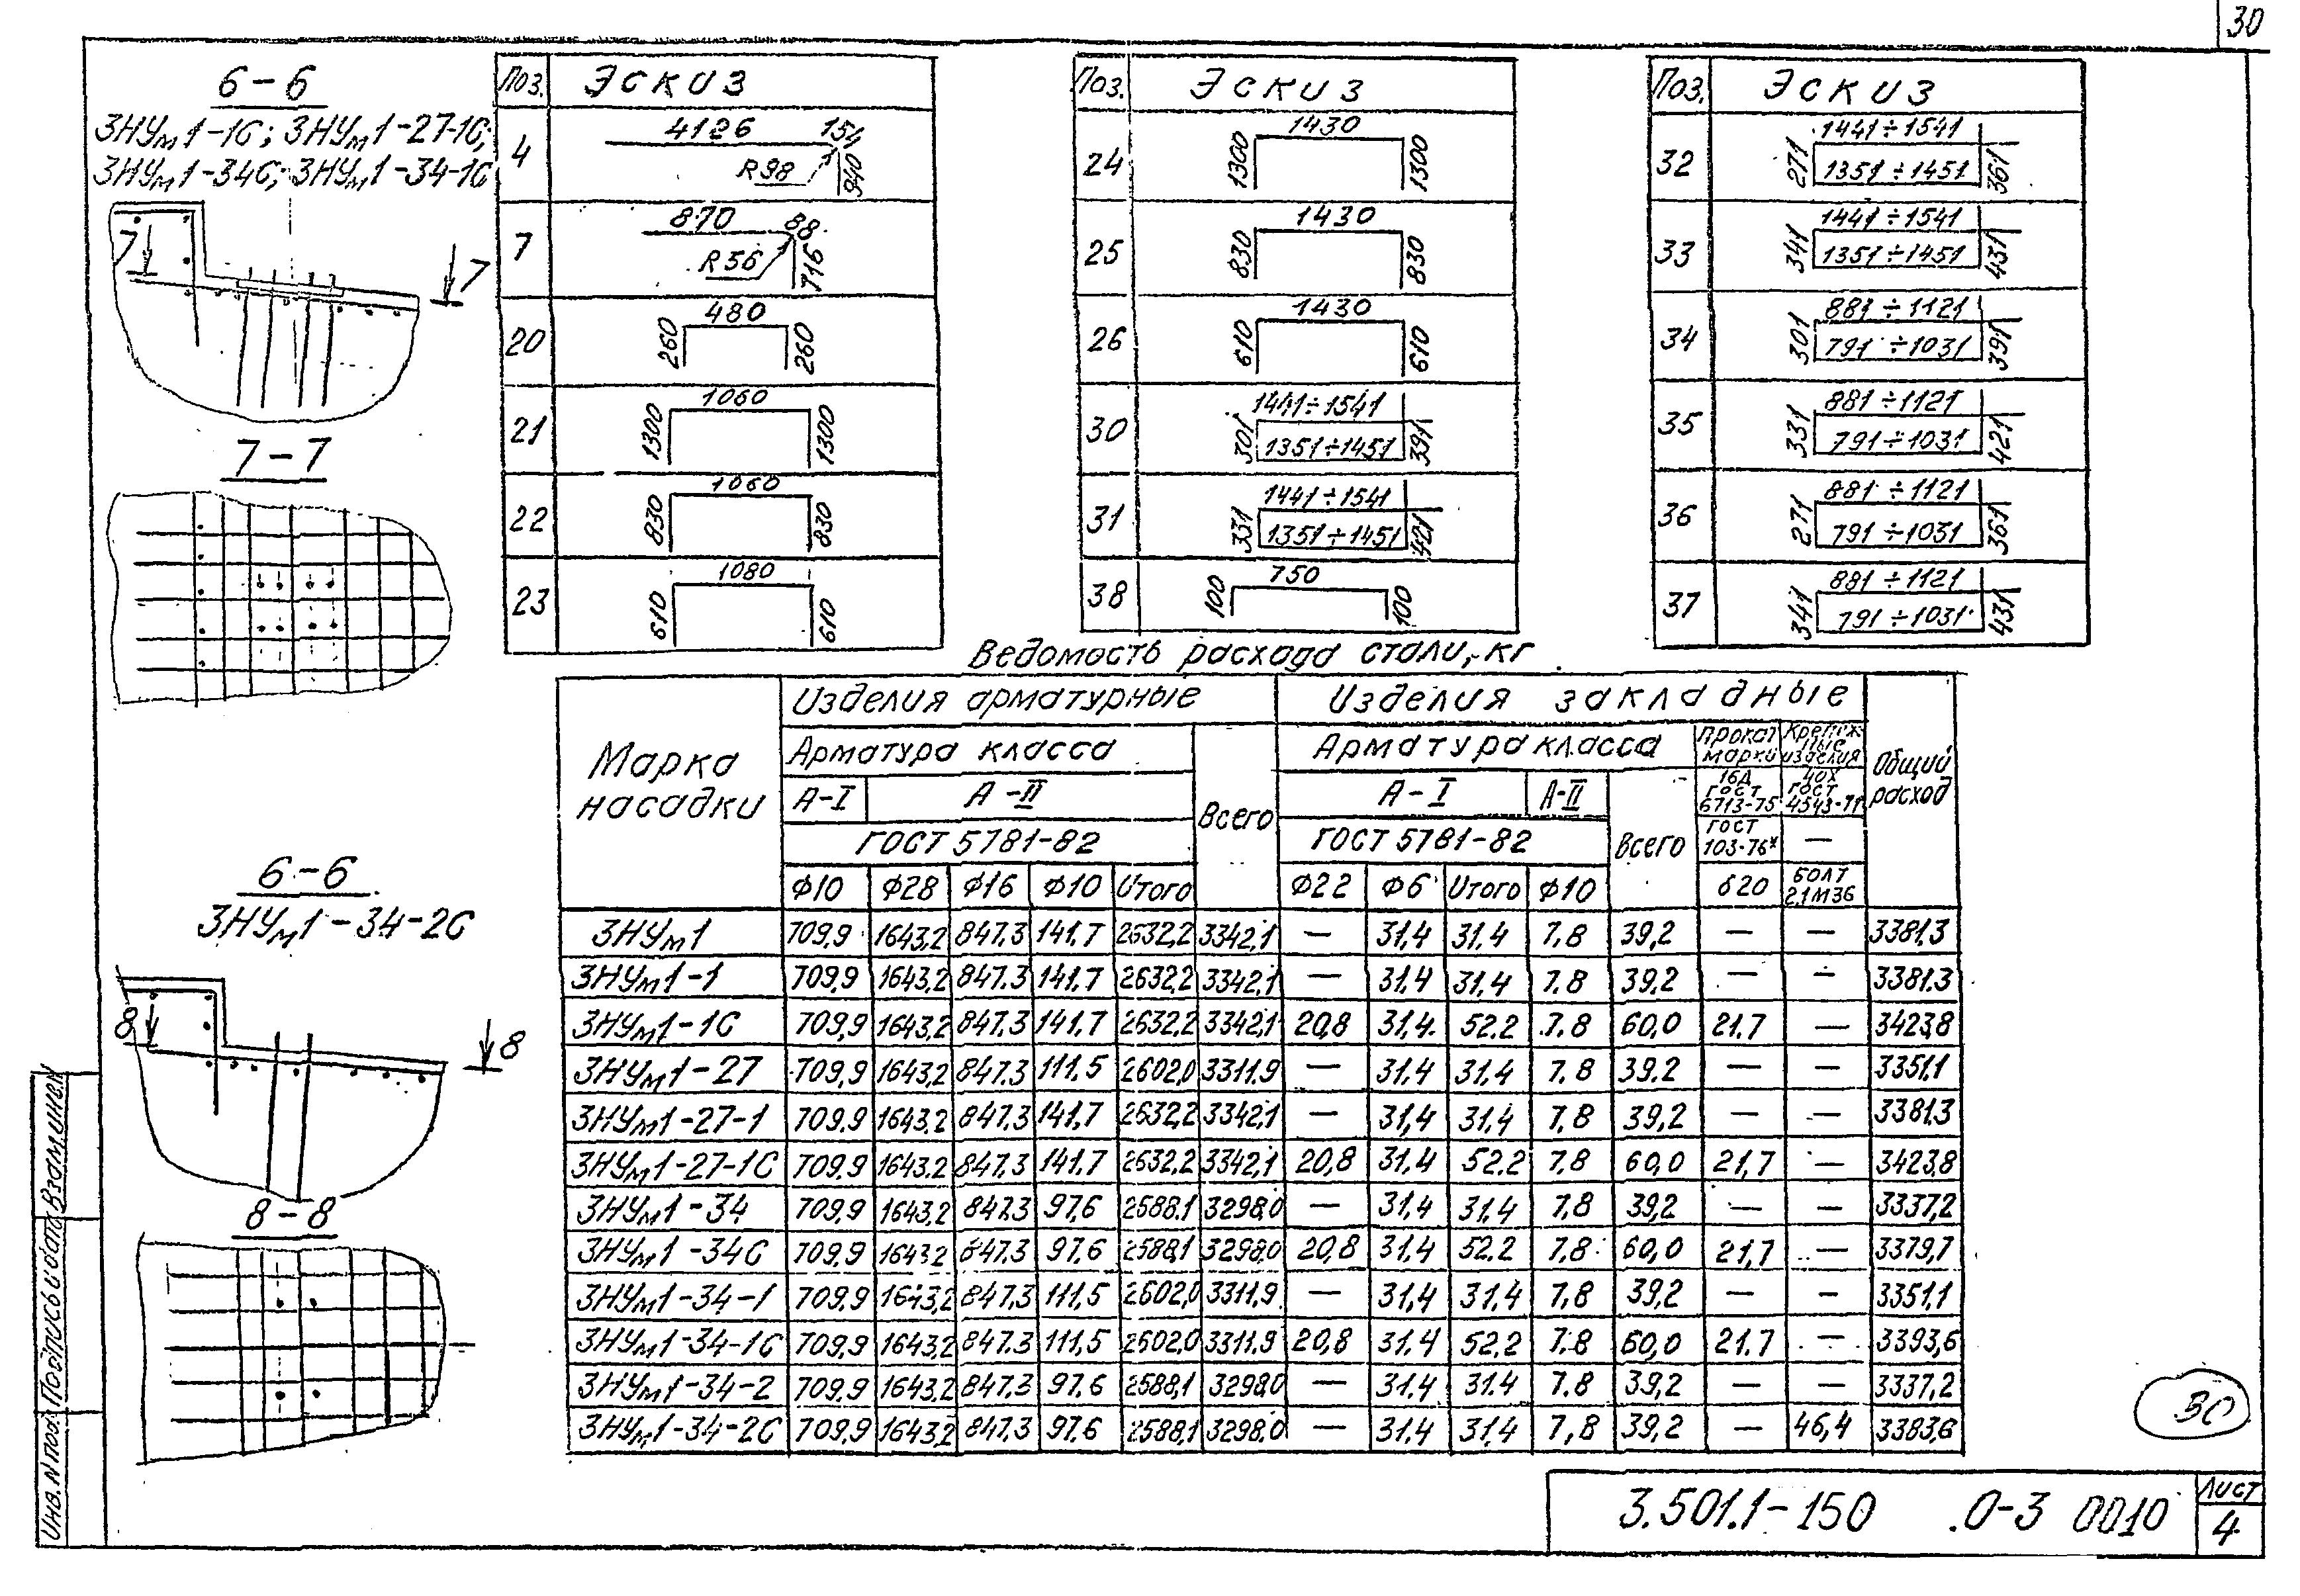 30
6-6
3НУм1-1С; 3НУм1-27-1С;
3НУм1-34С; 3НУм1-34-1С
7 7
7-7
6-6
3НУм1-34-2С
8 8
8-8
Поз. Эскиз
4 4126 154 R98 940
7 870 88 R56 716
20 260 480 260
21 1300 1060 1300
22 830 1060 830
23 610 1080 610
Поз. Эскиз
24 1300 1430 1300
25 830 1430 830
26 610 1430 610
30 301 1441÷1541 1351÷1451 391
31 331 1441÷1541 1351÷1451 421
38 100 750 100
Поз. Эскиз
32 271 1441÷1541 1351÷1451 361
33 341 1441÷1541 1351÷1451 431
34 301 881÷1121 791÷1031 391
35 331 881÷1121 791÷1031 421
36 271 881÷1121 791÷1031 361
37 341 881÷1121 791÷1031 431
Ведомость расхода стали, кг
Марка насадки
Изделия арматурные Изделия закладные Общий расход
Арматура класса Всего Арматура класса Всего Прокат марки Крепежные изделия
А-I А-II А-I А-II 16Д ГОСТ 6713-75 40Х ГОСТ 4543-71
ГОСТ 5781-82 ГОСТ 5781-82 ГОСТ 103-76* —
Ф10 Ф28 Ф16 Ф10 Итого Ф22 Ф6 Итого Ф10 δ20 болт 2.1М36
3НУм1 709,9 1643,2 847.3 141,7 2632,2 3342,1 — 31,4 31.4 7,8 39,2 — — 3381,3
3НУм1-1 709,9 1643,2 847.3 141,7 2632,2 3342,1 — 31,4 31,4 7.8 39.2 — — 3381.3
3НУм1-1С 709,9 1643,2 847.3 141.7 2632,2 3342,1 20,8 31,4 52.2 7.8 60,0 21.7 — 3423,8
3НУм1-27 709,9 1643,2 847.3 111,5 2602,0 3311.9 — 31,4 31,4 7.8 39.2 — — 3351,1
3НУм1-27-1 709.9 1643.2 847.3 141,7 2632,2 3342,1 — 31,4 31.4 7.8 39,2 — — 3381,3
3НУм1-27-1С 709.9 1643.2 847.3 141.7 2632,2 3342,1 20,8 31,4 52.2 7,8 60,0 21,7 — 3423,8
3НУм1-34 709,9 1643,2 847.3 97,6 2588.1 3298,0 — 31,4 31,4 7,8 39,2 — — 3337,2
3НУм1-34С 709,9 1643,2 847.3 97,6 2588,1 3298,0 20,8 31.4 52.2 7,8 60,0 21,7 — 3379,7
3НУм1-34-1 709.9 1643,2 847.3 111,5 2602,0 3311,9 — 31,4 31,4 7,8 39,2 — — 3351,1
3НУм1-34-1С 709,9 1643,2 847.3 111,5 2602,0 3311.9 20,8 31.4 52.2 7.8 60,0 21.7 — 3393,6
3НУм1-34-2 709.9 1643,2 847.3 97.6 2588,1 3298,0 — 31.4 31.4 7.8 39,2 — — 3337,2
3НУм1-34-2С 709,9 1643,2 847.3 97,6 2588,1 3298,0 — 31.4 31.4 7,8 39,2 — 46,4 3383,6
ВС
3.501.1-150 .0-3 0010
Лист
4
Инв. N подл. Подпись и дата Взам.инв.N